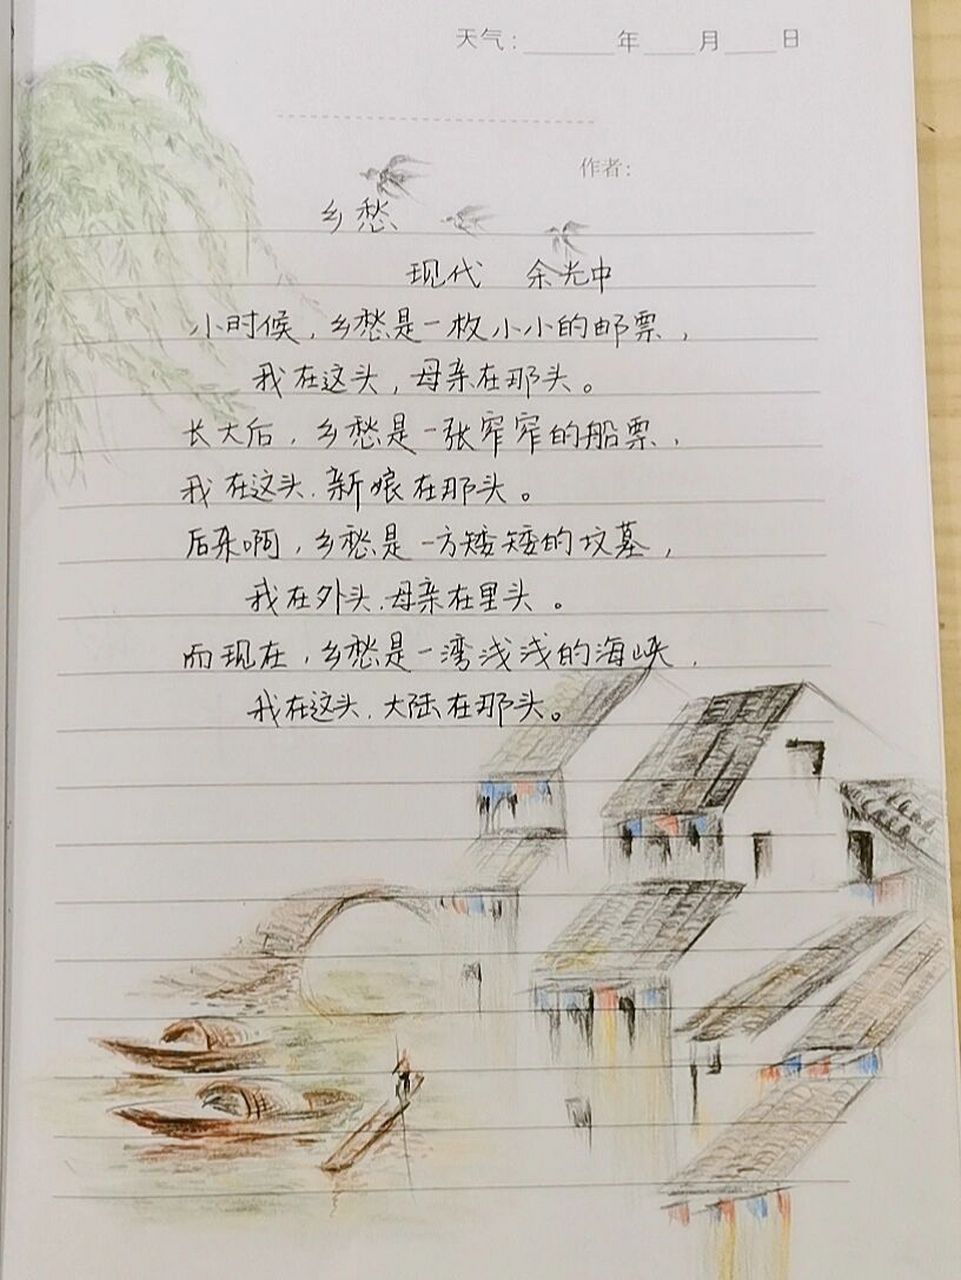 天气：______年____月____日
作者：
乡愁
现代 余光中
小时候，乡愁是一枚小小的邮票，
我在这头，母亲在那头。
长大后，乡愁是一张窄窄的船票，
我在这头，新娘在那头。
后来啊，乡愁是一方矮矮的坟墓，
我在外头，母亲在里头。
而现在，乡愁是一湾浅浅的海峡，
我在这头，大陆在那头。